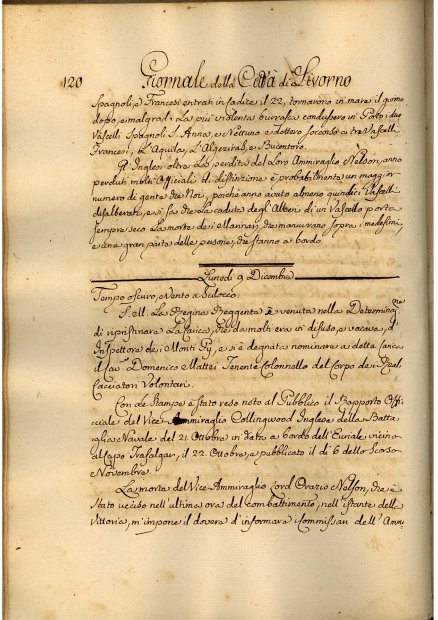 120 Giornale della Città di Livorno
Spagnoli, e Francesi entrati in Cadice il 22, tornarono in mare il giorno
dopo, e malgrado la più violenta burrasca condussero in Porto i due
Vascelli Spagnoli S. Anna, e Nettuno e dettero soccorso a tre Vascelli
Francesi, L'Aquila, L'Algeziras, e Bucentoro.
Gl'Inglesi oltre la perdita del loro Ammiraglio Nelson, anno
perduti molti Officiali di distinzione e probabilmente un maggior
numero di gente che Noi, poichè anno avuto almeno quindici Vascelli
disalberati, e si sa che la caduta degl'Alberi di un Vascello porta
sempre seco la morte dei Marinari, che manuvrano sopra i medesimi,
e una gran parte delle persone, che stanno a bordo.
Lunedì 9 Dicembre
Tempo oscuro, Vento a Scilocco
S. M. La Regina Reggente è venuta nella Determinaz.ne
di ripristinare La Carica, che da molti era in disuso, e vacava, d'
Inspettore dei Monti Pij, e si è degnata nominare a detta Carica
il Cav.e Domenico Mattei Tenente Colonnello del Corpo dei Reali
Cacciatori Volontari.
Con le Stampe è stato reso noto al Pubblico il Rapporto Offi-
ciale del Vice Ammiraglio Collingwood Inglese della Batta-
glia Navale del 21. Ottobre in data a bordo dell'Euriale vicino
al Capo Trafalgar, il 22. Ottobre, e pubblicato il dì 6 dello Scorso
Novembre.
La morte del Vice Ammiraglio Lord Orazio Nelson, che è
Stato ucciso nell'ultima ora del combattimento, nell'istante della
Vittoria, m'impone il dovere d'informare i Commissari dell'Ammi